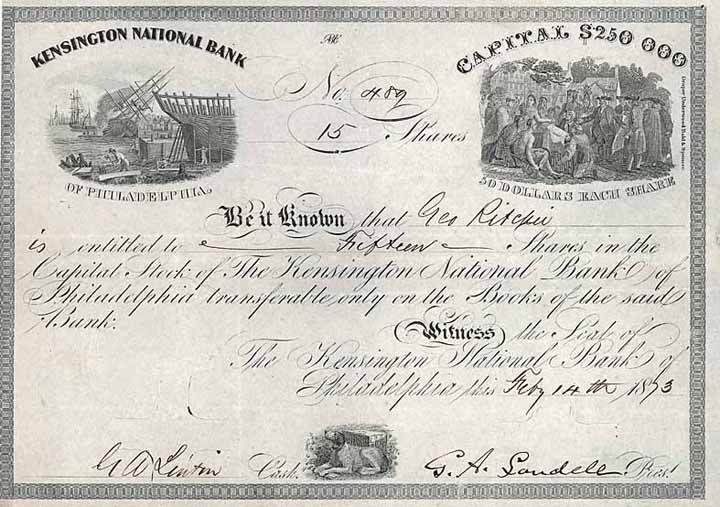 KENSINGTON NATIONAL BANK
OF PHILADELPHIA.
No. 489
15 Shares
CAPITAL $250 000
50 DOLLARS EACH SHARE
Be it Known that Geo
is entitled to Fifteen Shares in the
Capital Stock of The Kensington National Bank of
Philadelphia transferable only on the Books of the said
Bank.
Witness the Seal of
The Kensington National Bank of
Philadelphia this Feby 14th 1873
Cash.
G. A. Landell Pres.t